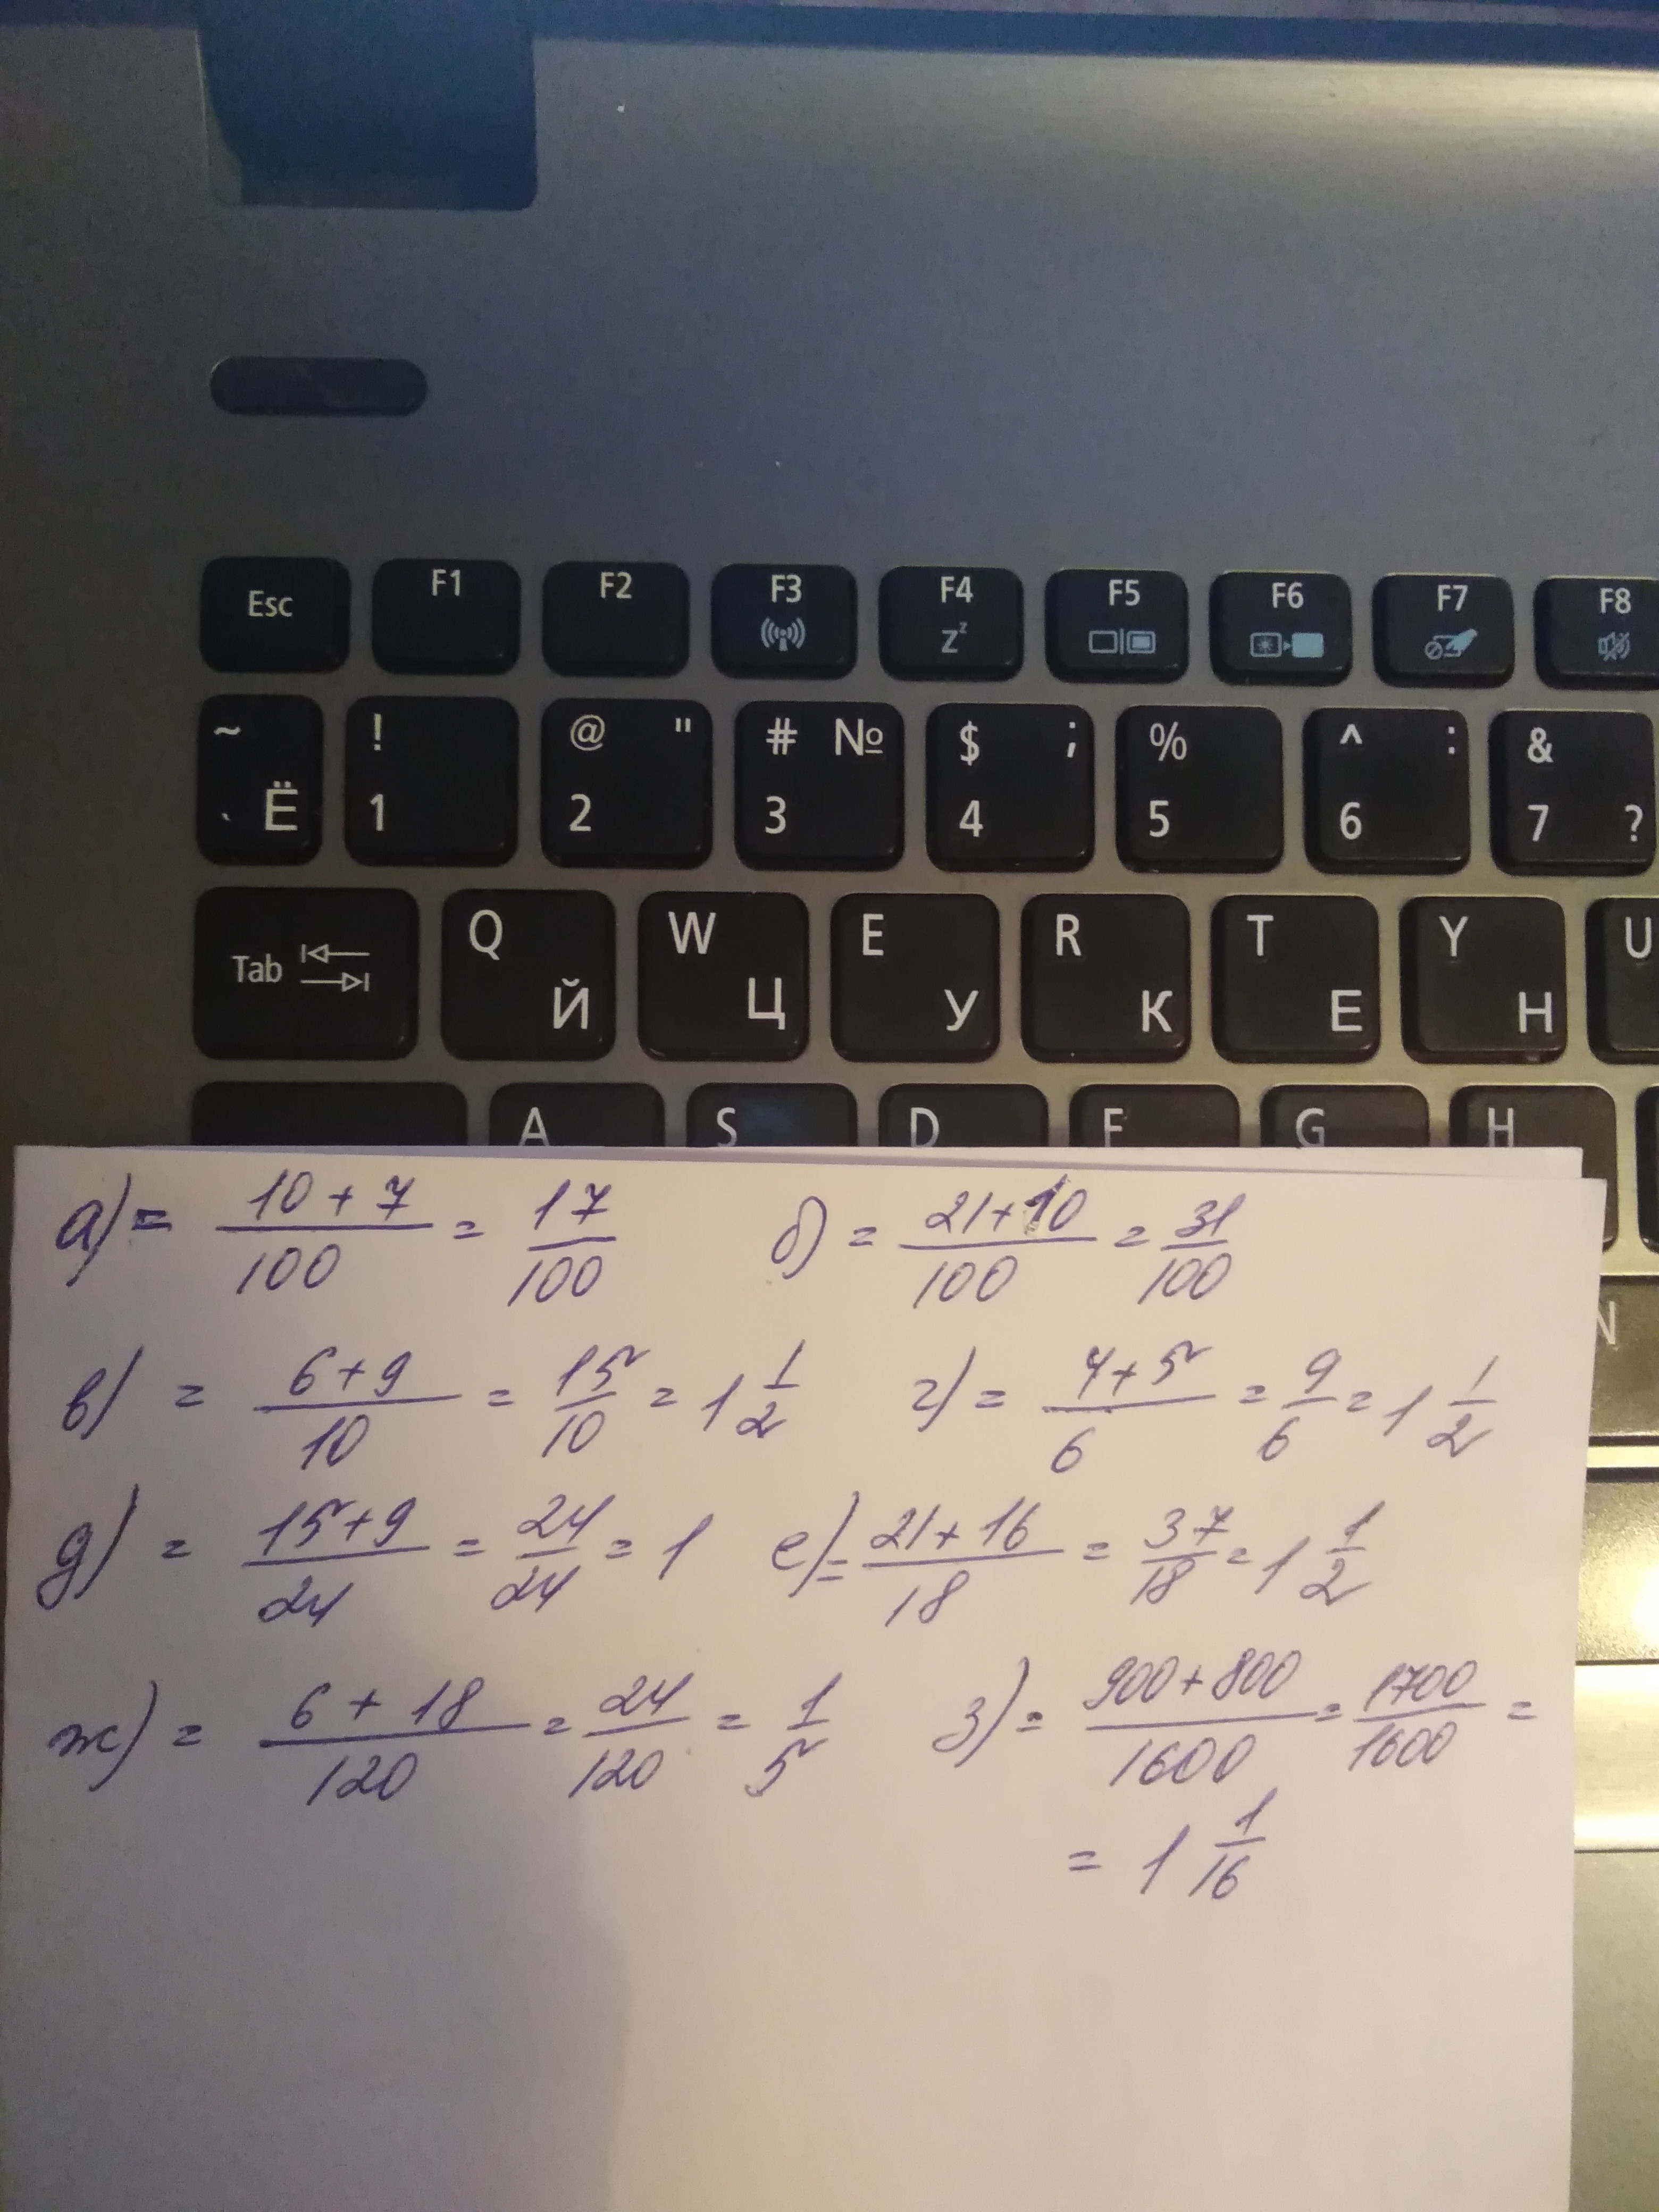 Esc F1 F2 F3 F4 Zz F5 F6 F7 F8
~ ` Ё ! 1 @ " 2 # № 3 $ ; 4 % 5 ^ : 6 & 7 ?
Tab Q Й W Ц E У R К T Е Y Н U
A S D F G H
N
а) = (10 + 7)/100 = 17/100 б) = (21+10)/100 = 31/100
в) = (6+9)/10 = 15/10 = 1 1/2 г) = (4+5)/6 = 9/6 = 1 1/2
д) = (15+9)/24 = 24/24 = 1 е) = (21+16)/18 = 37/18 = 1 1/2
ж) = (6 + 18)/120 = 24/120 = 1/5 з) = (900+800)/1600 = 1700/1600 =
= 1 1/16